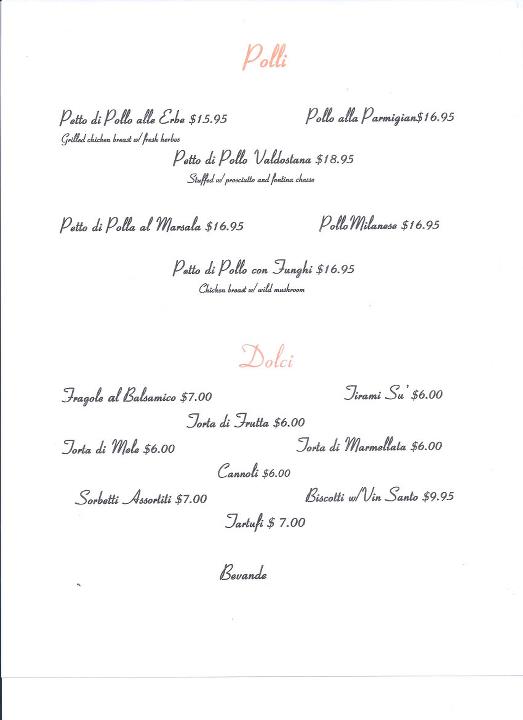 Polli
Petto di Pollo alle Erbe $15.95
Pollo alla Parmigian$16.95
Grilled chicken breast w/ fresh herbos
Petto di Pollo Valdostana $18.95
Stuffed w/ prosciutto and fontina cheese
Petto di Polla al Marsala $16.95
Pollo Milanese $16.95
Petto di Pollo con Funghi $16.95
Chicken breast w/ wild mushroom
Dolci
Fragole al Balsamico $7.00
Tirami Su' $6.00
Torta di Frutta $6.00
Torta di Mele $6.00
Torta di Marmellata $6.00
Cannoli $6.00
Sorbetti Assortiti $7.00
Biscotti w/Vin Santo $9.95
Tartufi $ 7.00
Bevande